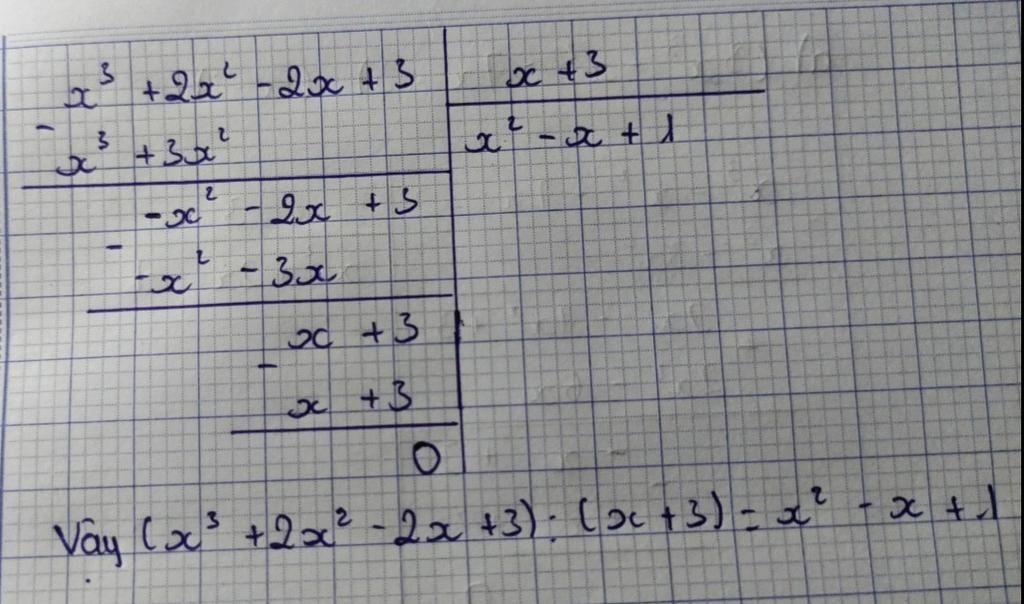 x³ + 2x² - 2x + 3 x + 3
-
x³ + 3x² x² - x + 1
-x² - 2x + 3
-
-x² - 3x
x + 3
-
x + 3
0
Vậy (x³ + 2x² - 2x + 3) : (x + 3) = x² - x + 1